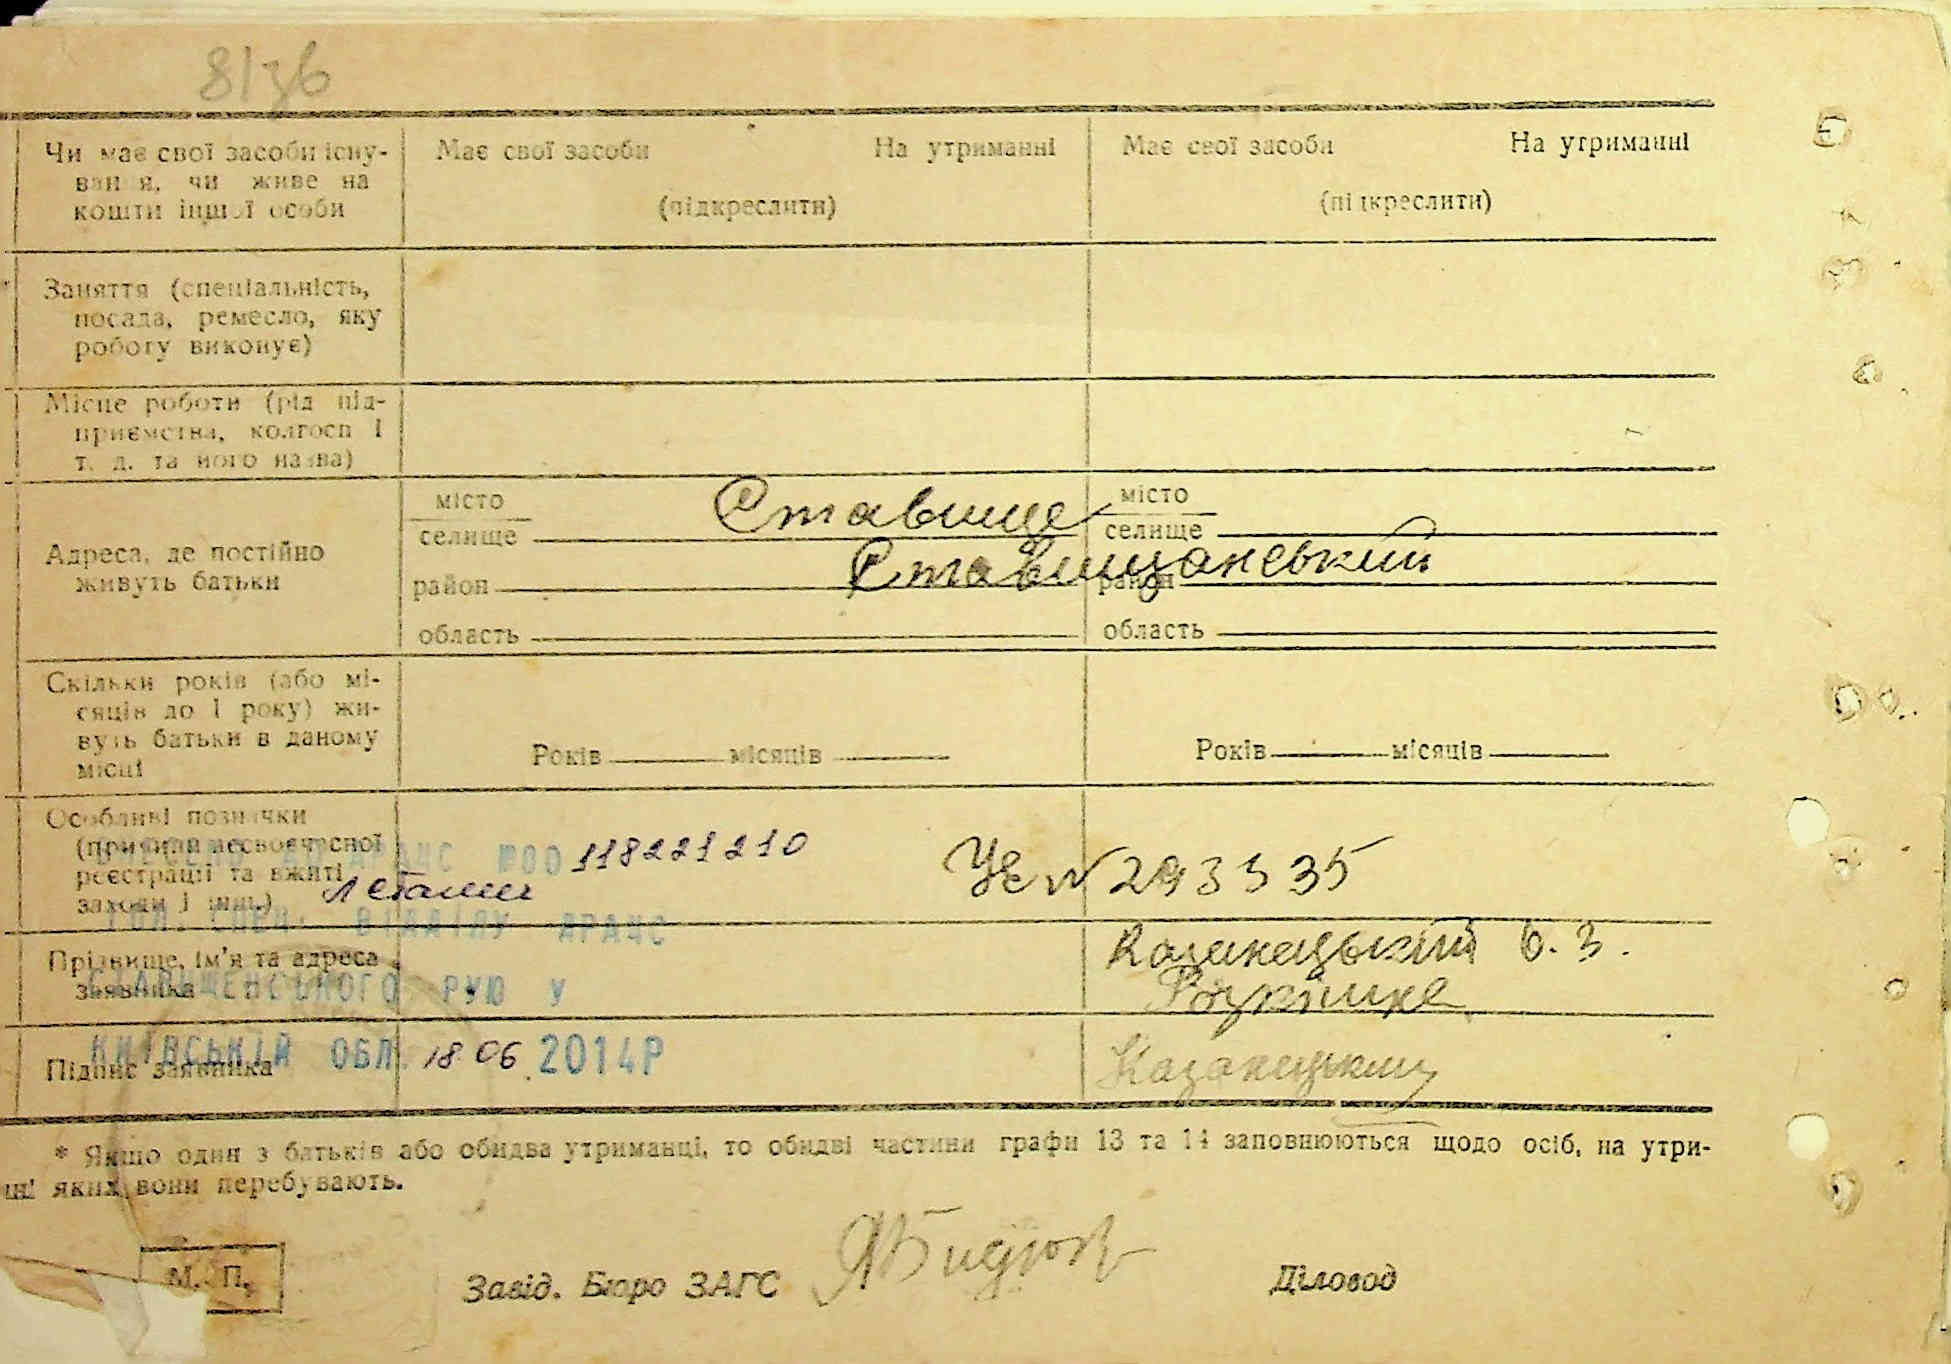 8136
Чи має свої засоби існу-
вання, чи живе на
кошти іншої особи
Має свої засоби На утриманні
(підкреслити)
Має свої засоби На утриманні
(підкреслити)
Заняття (спеціальність,
посада, ремесло, яку
роботу виконує)
Місце роботи (рід під-
приємства, колгосп і
т. д. та його назва)
Адреса, де постійно
живуть батьки
місто
селище
Ставище
район
Ставищанський
область
місто
селище
район
область
Скільки років (або мі-
сяців до 1 року) жи-
вуть батьки в даному
місці
Років місяців
Років місяців
Особливі позначки
(причини несвоєчасної
реєстрації та вжиті
заходи і інш.)
ДРАЦС №00 118221210
ГОЛ. СПЕЦ. ВІДДІЛУ ДРАЦС
СТАВИЩЕНСЬКОГО РУЮ У
КИЇВСЬКІЙ ОБЛ. 18 06 2014Р
Прізвище, ім'я та адреса
заявника
Підпис заявника
* Якщо один з батьків або обидва утриманці, то обидві частини графи 13 та 14 заповнюються щодо осіб, на утри-
ні яких вони перебувають.
М. П.
Завід. Бюро ЗАГС
Діловод